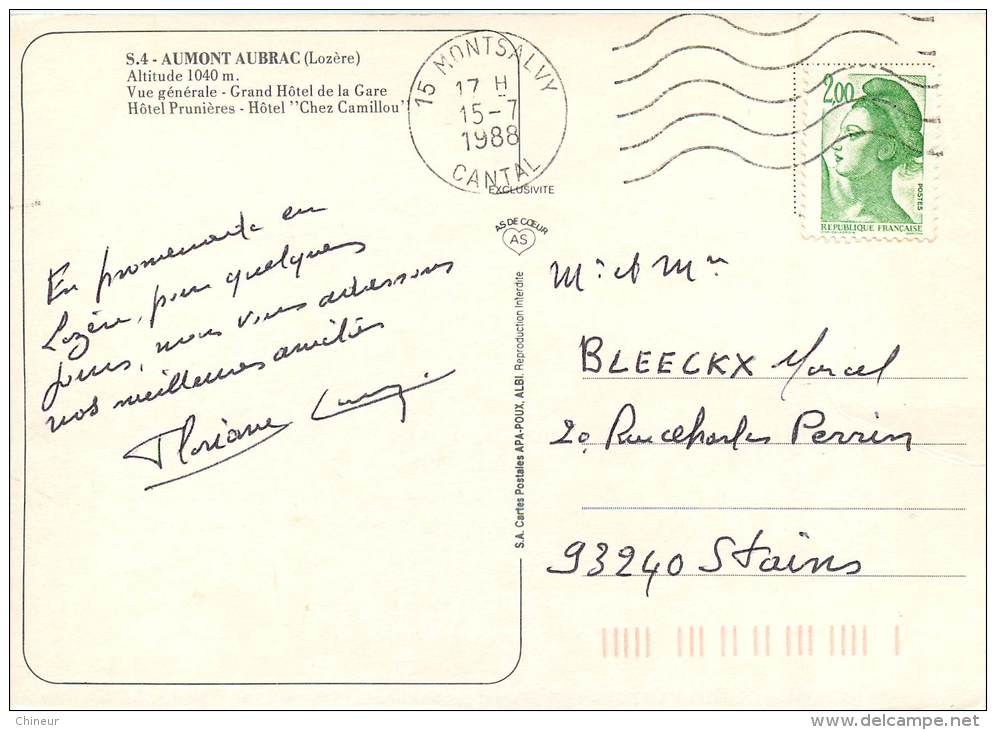 S.4 - AUMONT AUBRAC (Lozère)
Altitude 1040 m.
Vue générale - Grand Hôtel de la Gare
Hôtel Prunières - Hôtel "Chez Camillou"
15 MONTSALVY
17 H
15-7
1988
CANTAL
2,00
POSTES
REPUBLIQUE FRANÇAISE
EXCLUSIVITE
AS DE CŒUR
AS
S.A. Cartes Postales APA-POUX, ALBI. Reproduction Interdite
En promenade en
Lozère, pour quelques
jours, nous vous adressons
nos meilleures amitiés
Floriane
Mr et Mme
BLEECKX Marcel
20, Rue Charles Perrin
93240 Stains
Chineur
delcampe.net